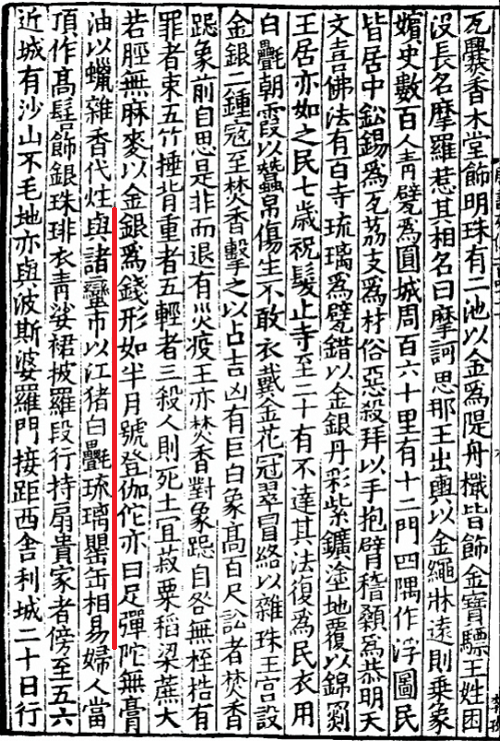 瓦爨香木堂飾明珠有二池以金爲隄舟檝皆飾金寶驃王姓困
没長名摩羅惹其相名曰摩訶思那王出輿以金繩牀遠則乗象
嬪史數百人青甓爲圓城周百六十里有十二門四隅作浮圖民
皆居中鈆錫爲瓦荔支爲材俗惡殺拜以手抱臂稽顙爲恭明天
文喜佛法有百寺琉璃爲甓錯以金銀丹彩紫鑛塗地覆以錦罽
王居亦如之民七歲祝髮止寺至二十有不達其法復爲民衣用
白㲲朝霞以蠶帛傷生不敢衣戴金花冠翠冒絡以雜珠王宫設
金銀二鍾寇至焚香擊之以占吉凶有巨白象髙百尺訟者焚香
跽象前自思是非而退有災疫王亦焚香對象跽自咎無桎梏有
罪者束五竹捶背重者五輕者三殺人則死土宜菽粟稻粱蔗大
若脛無麻麥以金銀爲錢形如半月號登伽佗亦曰足彈陀無膏
油以蠟雜香代炷與諸蠻市以江猪白㲲琉璃罌缶相易婦人當
頂作髙髻飾銀珠琲衣青娑裙披羅段行持扇貴家者傍至五六
近城有沙山不毛地亦與波斯婆羅門接距西舍利城二十日行